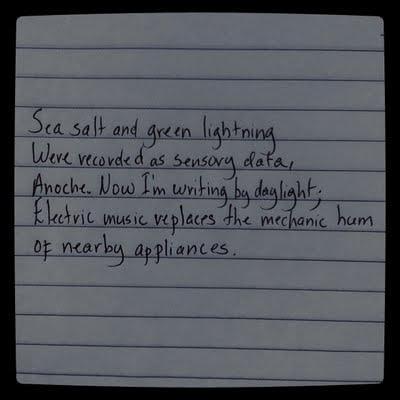 Sea salt and green lightning
Were recorded as sensory data,
Anoche. Now I'm writing by daylight;
Electric music replaces the mechanic hum
of nearby appliances.